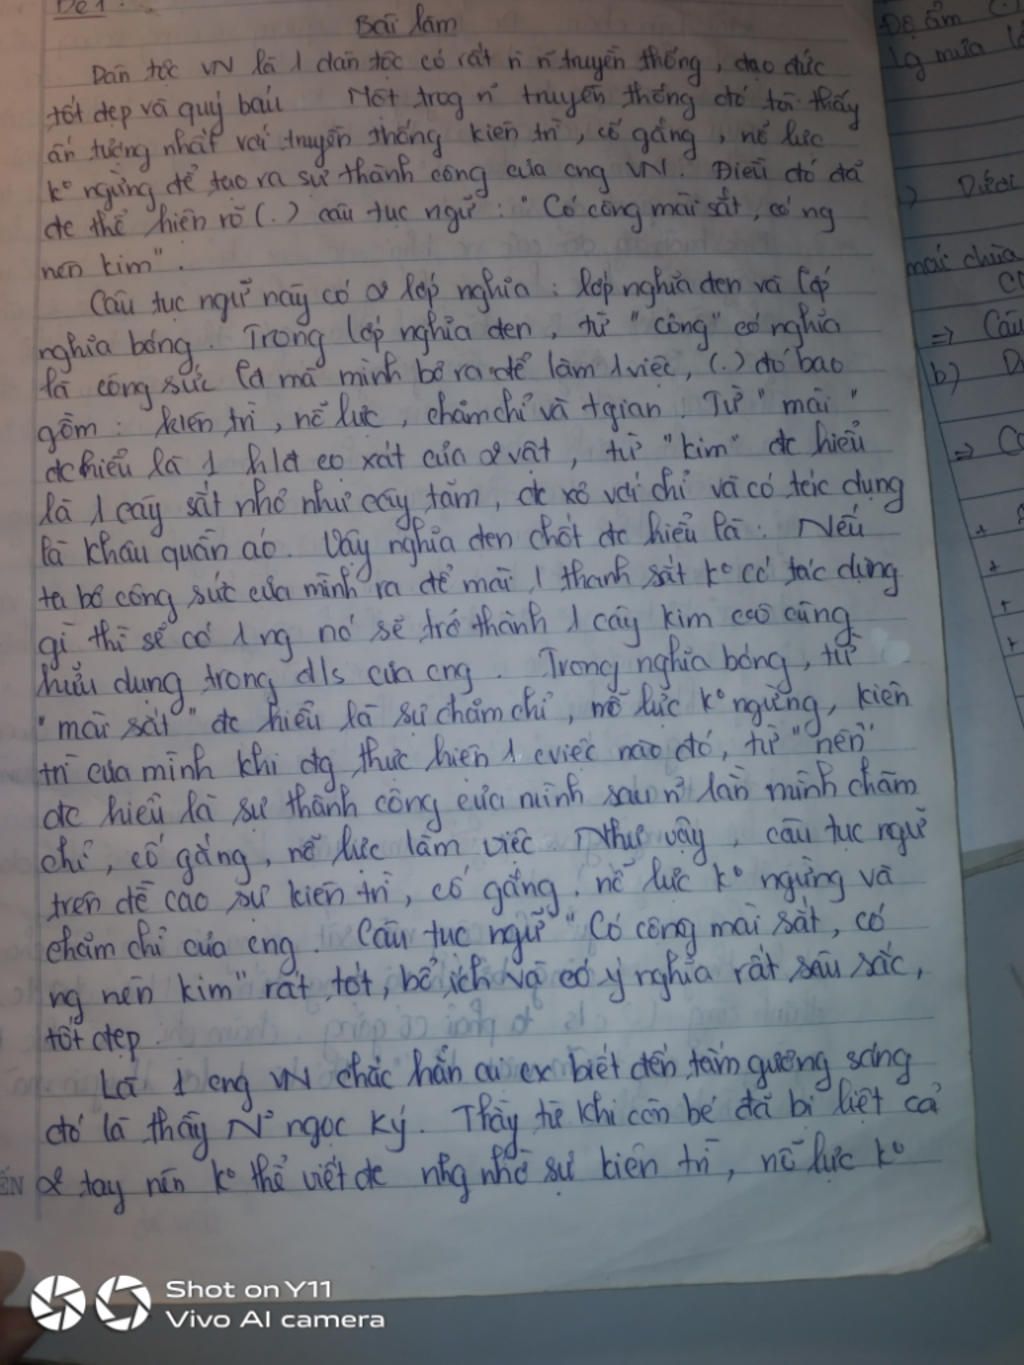 Đề 1:
Bài làm
Dân tộc VN là 1 dân tộc có rất n n truyền thống, đạo đức
tốt đẹp và quý báu Một trog n' truyền thống đó tôi thấy
ấn tượng nhất với truyền thống kiên trì, cố gắng, nỗ lực
kº ngừng để tạo ra sự thành công của cng VN. Điều đó đã
đc thể hiện rõ (.) câu tục ngữ: "Có công mài sắt, có ng
nên kim".
Câu tục ngữ này có 2 lớp nghĩa: lớp nghĩa đen và lớp
nghĩa bóng. Trong lớp nghĩa đen, từ "công" có nghĩa
là công sức lđ mà mình bỏ ra để làm 1 việc, (.) đó bao
gồm: kiên trì, nỗ lực, chăm chỉ và tgian. Từ "mài"
đc hiểu là 1 hlđ cọ xát của 2 vật, từ "kim" đc hiểu
là 1 cây sắt nhỏ như cây tăm, đc xỏ với chỉ và có tác dụng
là khâu quần áo. Vậy nghĩa đen chốt đc hiểu là: Nếu
ta bỏ công sức của mình ra để mài 1 thanh sắt kº có tác dụng
gì thì sẽ có 1 ng nó sẽ trở thành 1 cây kim vô cùng
hữu dụng trong đ/s của cng. Trong nghĩa bóng, từ
"mài sắt" đc hiểu là sự chăm chỉ, nỗ lực kº ngừng, kiên
trì của mình khi đg thực hiện 1 cviệc nào đó, từ "nên"
đc hiểu là sự thành công của mình sau n' lần mình chăm
chỉ, cố gắng, nỗ lực làm việc Như vậy, câu tục ngữ
trên đề cao sự kiên trì, cố gắng, nỗ lực kº ngừng và
chăm chỉ của cng. Câu tục ngữ "Có công mài sắt, có
ng nên kim" rất tốt, bổ ích và có ý nghĩa rất sâu sắc,
tốt đẹp.
Là 1 cng VN chắc hẳn ai cx biết đến tấm gương sáng
đó là thầy Nº ngọc Ký. Thầy từ khi còn bé đã bị liệt cả
2 tay nên kº thể viết đc nhg nhờ sự kiên trì, nỗ lực kº
Độ ẩm
lg mưa
Dưới
mái chùa
=> Câu
b)
Shot on Y11
Vivo AI camera